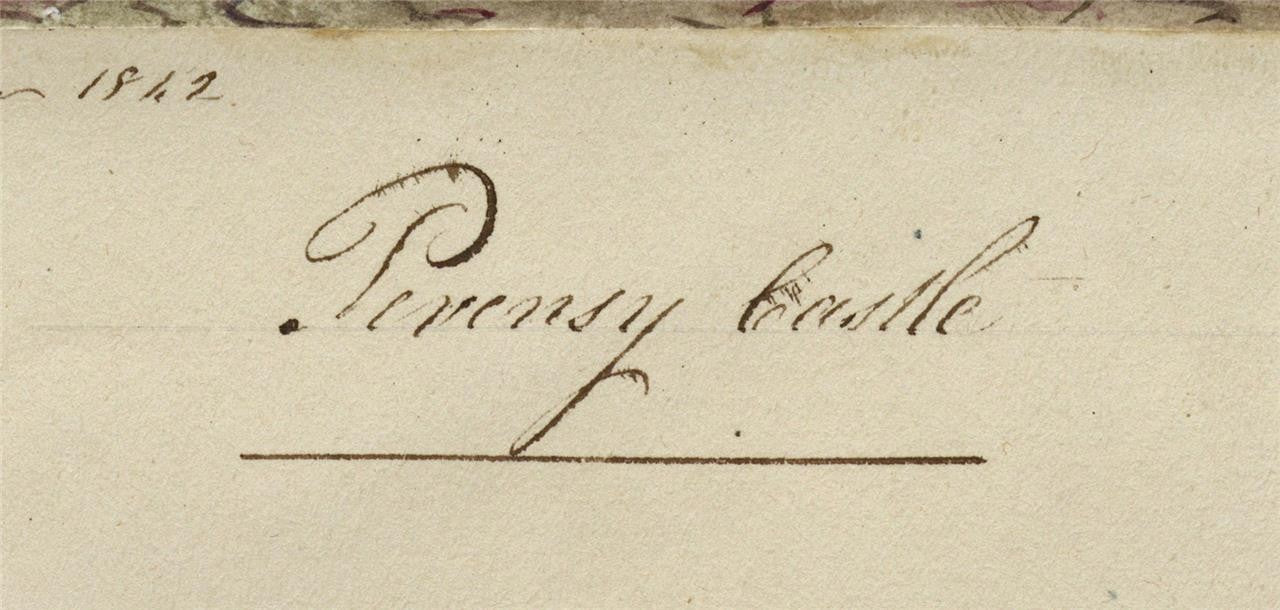 1842
Pevensy Castle